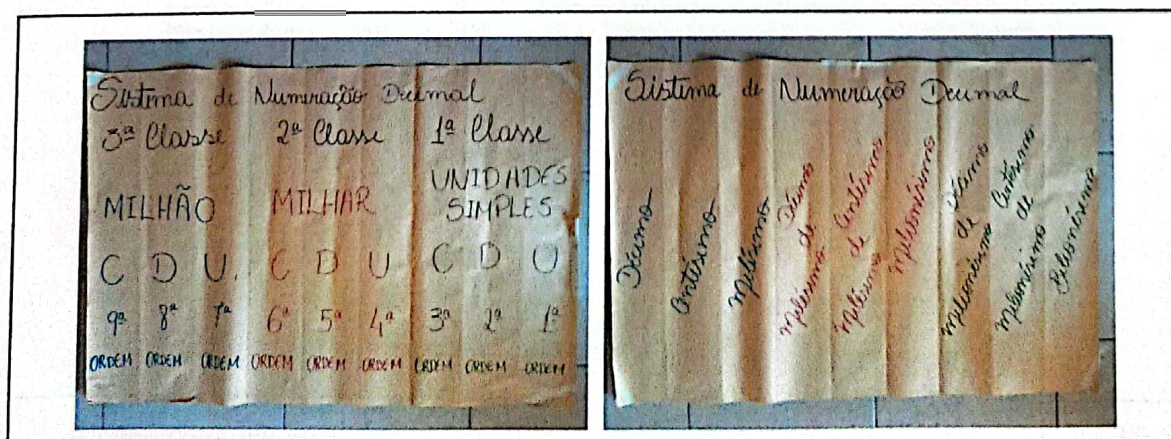 Sistema de Numeração Decimal
3ª Classe 2ª Classe 1ª Classe
MILHÃO MILHAR UNIDADES SIMPLES
C D U. C D U C D U
9ª 8ª 7ª 6ª 5ª 4ª 3ª 2ª 1ª
ORDEM ORDEM ORDEM ORDEM ORDEM ORDEM ORDEM ORDEM ORDEM
Sistema de Numeração Decimal
Décimo
Centésimo
Milésimo
Décimo de Milésimo
Centésimo de Milésimo
Milionésimo
Décimo de Milionésimo
Centésimo de Milionésimo
Bilionésimo